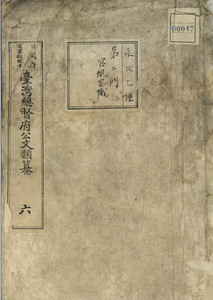 臺灣總督府公文類纂
六
永久乙種
第二門
官規官職
00047
2